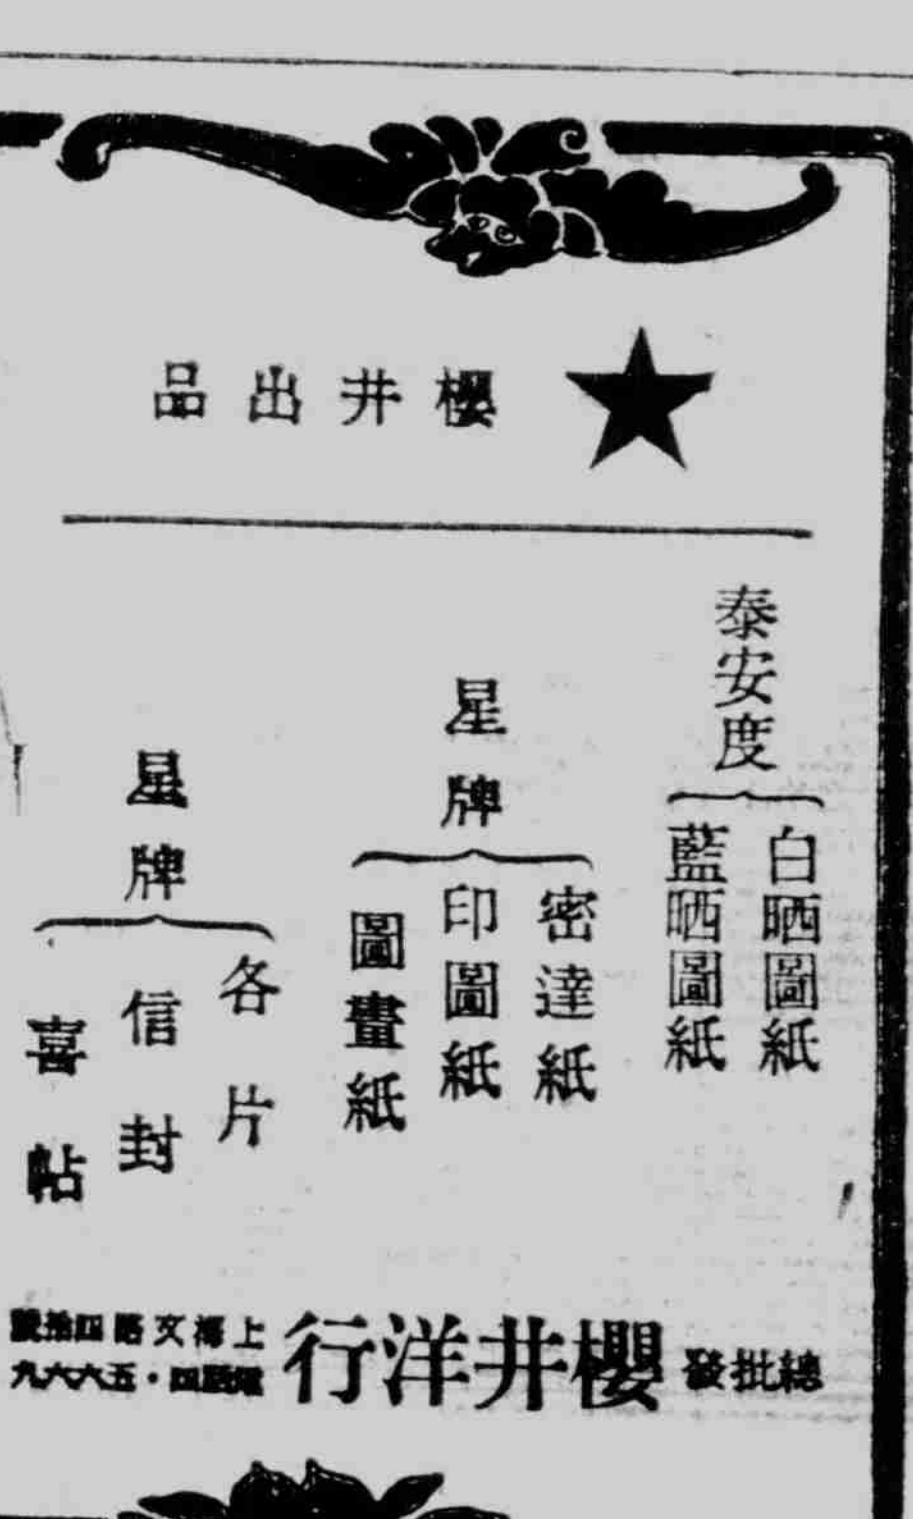 櫻井出品
泰安度
白晒圖紙
藍晒圖紙
星牌
密達紙
印圖紙
圖畫紙
星牌
各片
信封
喜帖
總批發
櫻井洋行
上海文路四拾號
電話四·五六六九